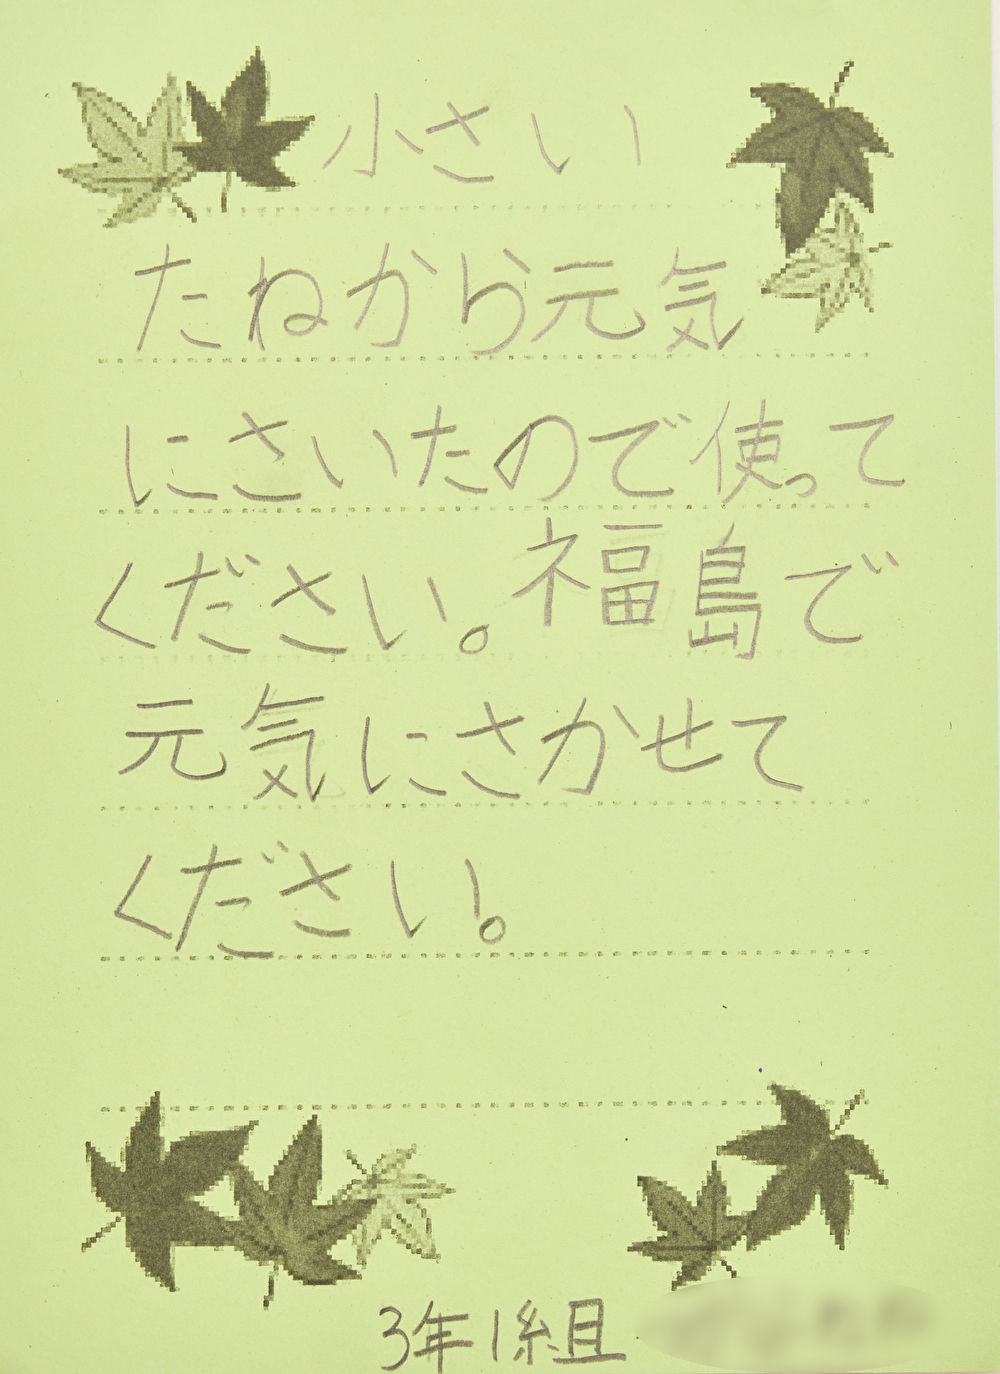 小さい
たねから元気
にさいたので使って
ください。福島で
元気にさかせて
ください。
3年1組